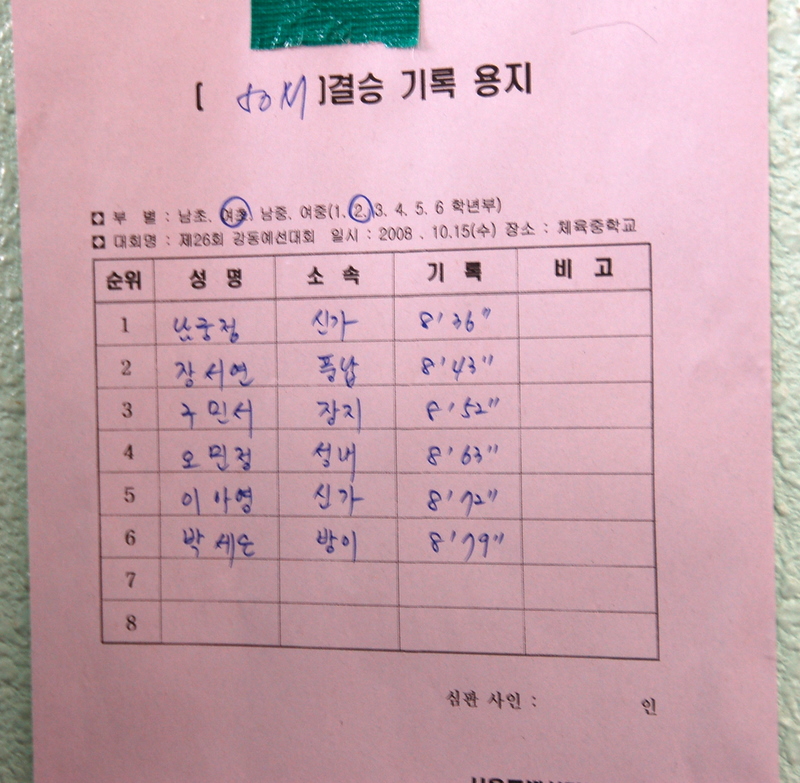 [ 80M ]결승 기록 용지
부 별 : 남초, 여초, 남중, 여중(1. 2. 3. 4. 5. 6 학년부)
대회명 : 제26회 강동예선대회 일시 : 2008 . 10.15(수) 장소 : 체육중학교
순위 성 명 소 속 기 록 비 고
1 남궁정 신가 8'36"
2 장서연 풍납 8'43"
3 구민서 잠지 8'52"
4 오민정 성내 8'63"
5 이아영 신가 8'72"
6 박세은 방이 8'79"
7
8
심판 사인 : 인